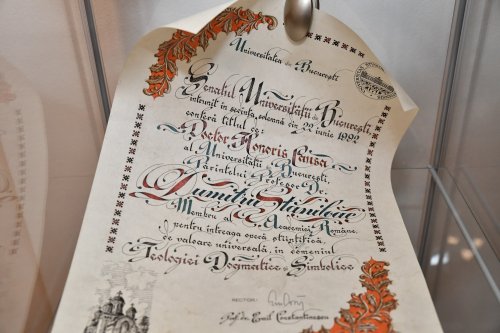 Universitatea din București
Senatul Universității din București
întrunit în ședința solemnă din 22 iunie 1992
conferă titlul de:
Doctor Honoris Causa
al Universității București
Părintelui Profesor Dr.
Dumitru Stăniloae
Membru al Academiei Române
pentru întreaga operă științifică
de valoare universală, în domeniul
Teologiei Dogmatice și Simbolice
RECTOR:
Prof. dr. Emil Constantinescu